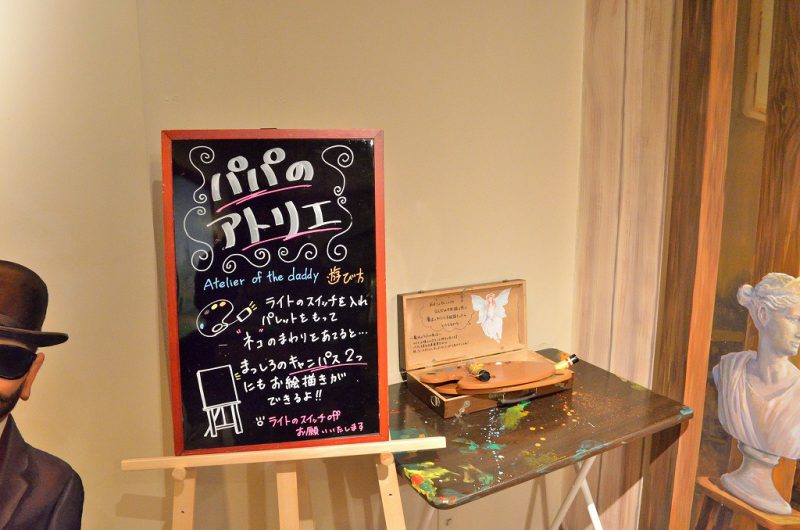 パパの
アトリエ
Atelier of the daddy 遊び方
ライトのスイッチを入れ
パレットをもって
"ネコ"のまわりをあてると…
まっしろのキャンパス2つ
にもお絵描きが
できるよ!!
ライトのスイッチoff
お願いいたします